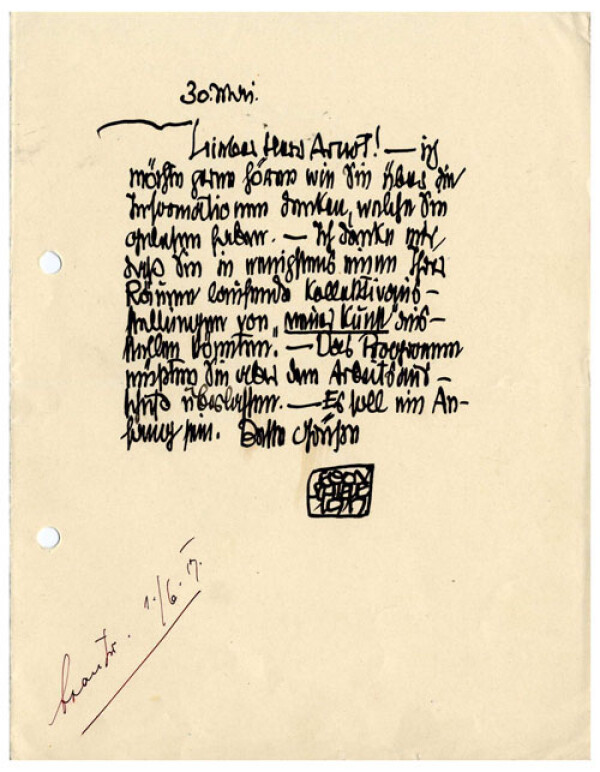 30. Mai.
Lieber Herr Arnot! — ich
möchte gerne hören wie Sie über die
Informationen denken, welche Sie
gelesen haben. — Ich denke mir,
daß Sie in wenigstens einem Ihrer
Räume laufende Kollektivaus-
stellungen von „neuer Kunst" aus-
stellen könnten. — Das Programm
müßten Sie aber dem Arbeitsaus-
schuß überlassen. — Es soll ein An-
fang sein. Beste Grüße
EGON
SCHIELE
1917
1./6. 17.